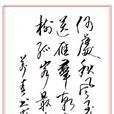 何處秋風至
送雁羣朝
樹孤客最